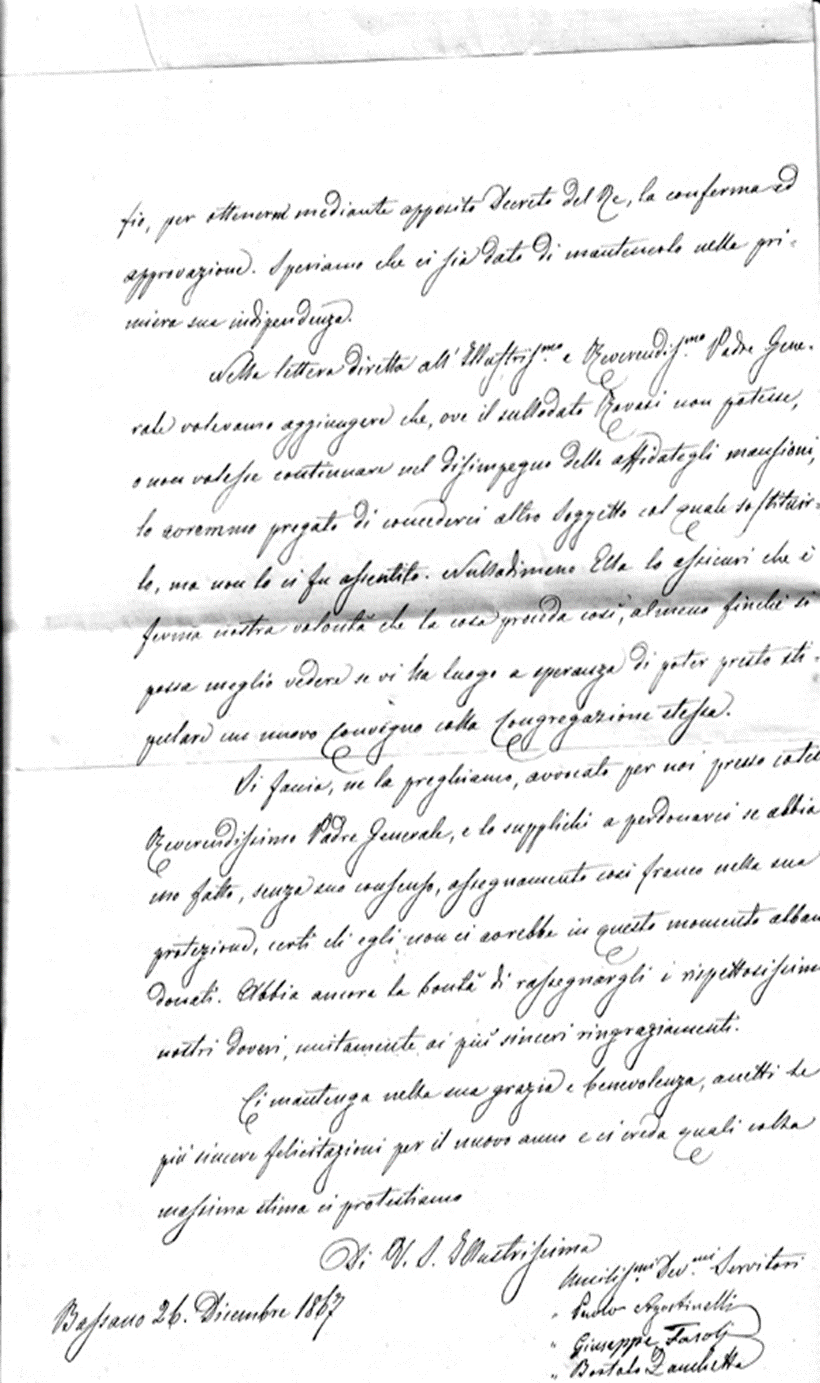 fio, per ottenerne mediante apposito Decreto del Re, la conferma ed
approvazione. Speriamo che ci sia dato di mantenerlo nella pri=
miera sua indipendenza.
Nella lettera diretta all' Illustriss.mo e Reverendiss.mo Padre Gene-
rale volevamo aggiungere che, ove il sullodato Ravasi non potesse,
o non volesse continuare nel disimpegno delle affidategli mansioni,
lo avremmo pregato di concederci altro Soggetto col quale sostituir=
lo, ma non lo ci fu assentito. Nulladimeno Ella lo assicuri che è
ferma nostra volontà che la cosa proceda così, almeno finchè si
possa meglio vedere se vi ha luogo a speranza di poter presto sti=
pulare un nuovo Convegno colla Congregazione stessa.
Si faccia, ne la preghiamo, avvocato per noi presso cotes
Reverendissimo Padre Generale, e lo supplichi a perdonarci se abbia
mo fatto, senza suo consenso, assegnamento così franco nella sua
protezione, certi ch' egli non ci avrebbe in questo momento abban
donati. Abbia ancora la bontà di rassegnargli i rispettosissimi
nostri doveri, unitamente ai più sinceri ringraziamenti.
Ci mantenga nella sua grazia e benevolenza, accetti le
più sincere felicitazioni per il nuovo anno e ci creda quali colla
massima stima ci protestiamo
Di V. S. Illustrissima
Umiliss.mi Dev.mi Servitori
Bassano 26. Dicembre 1867
" Paolo Agostinelli
" Giuseppe Fasoli
" Bortolo Zanchetta